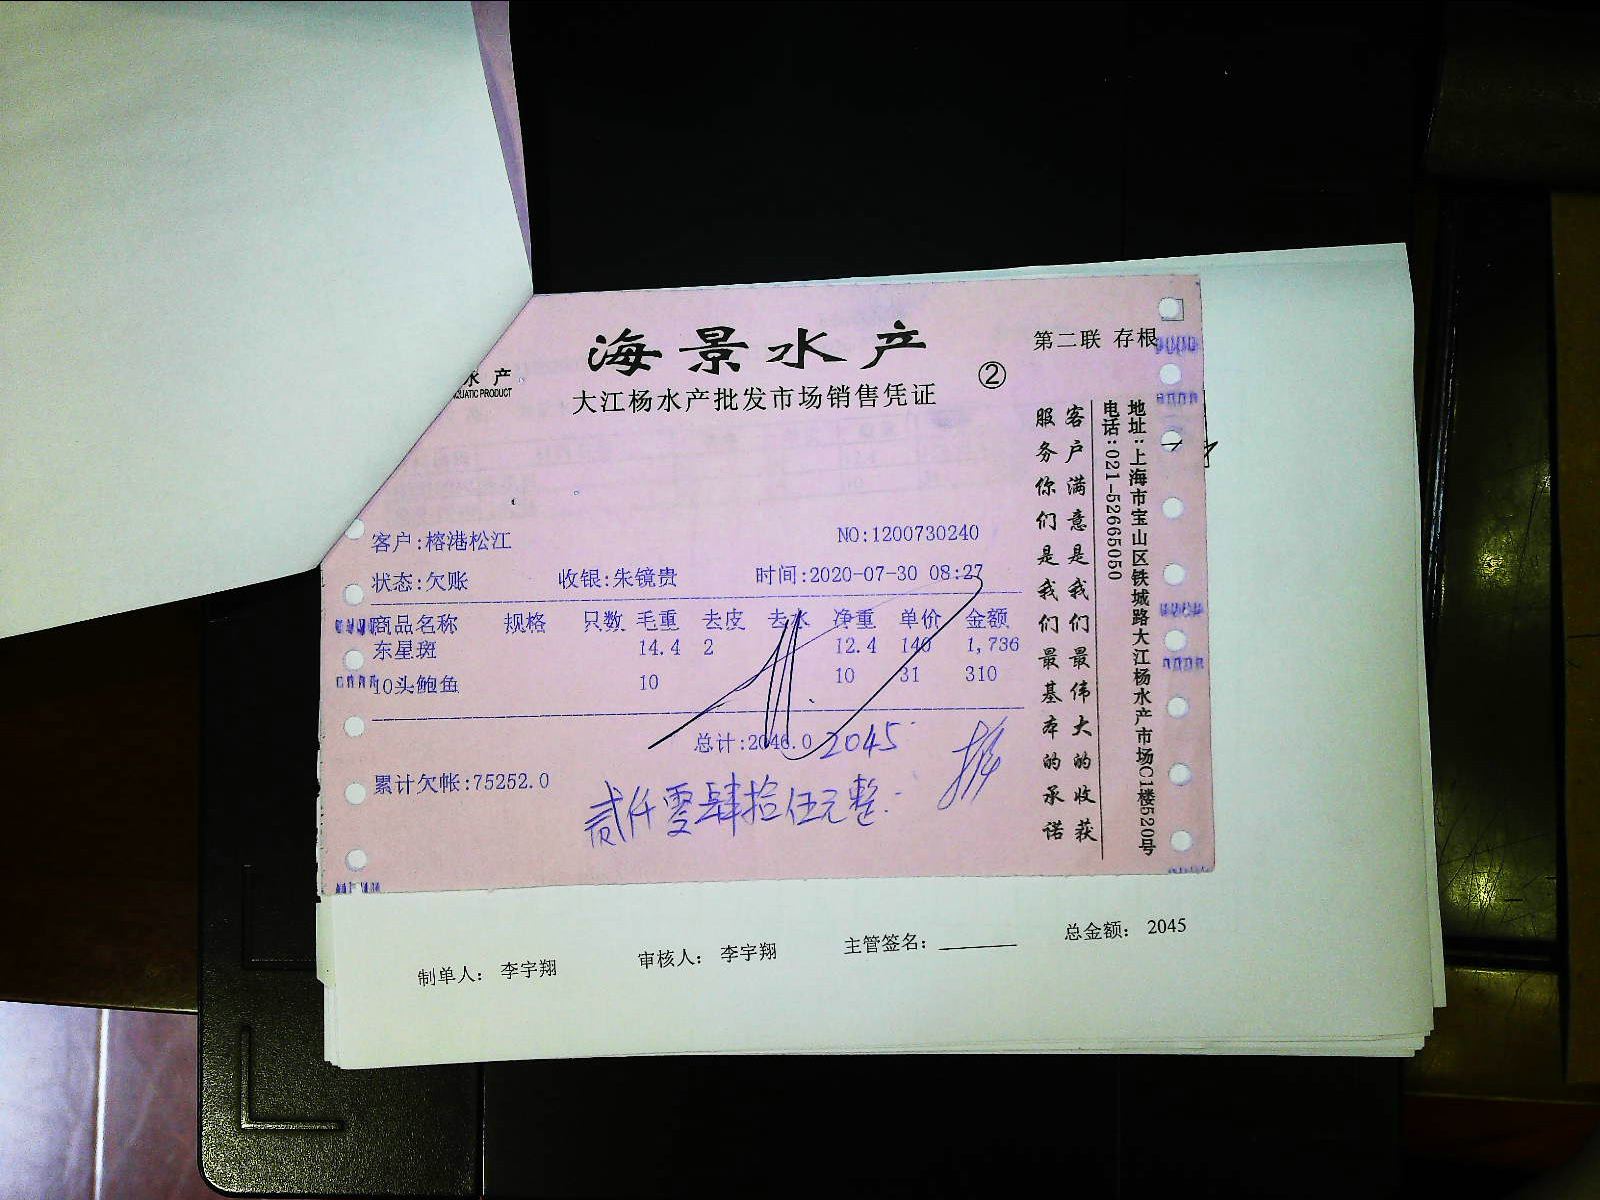 海景水产
大江杨水产批发市场销售凭证
②
第二联 存根
水产
AQUATIC PRODUCT
客户:榕港松江
NO:1200730240
状态:欠账 收银:朱镜贵 时间:2020-07-30 08:27
商品名称 规格 只数 毛重 去皮 去水 净重 单价 金额
东星斑 14.4 2 12.4 140 1,736
10头鲍鱼 10 10 31 310
总计:2046.0 2045
累计欠帐:75252.0
贰仟零肆拾伍元整
客户满意是我们最伟大的收获
服务你们是我们最基本的承诺
地址:上海市宝山区铁城路大江杨水产市场C1楼520号
电话:021-52665050
制单人: 李宇翔 审核人: 李宇翔 主管签名: 总金额: 2045